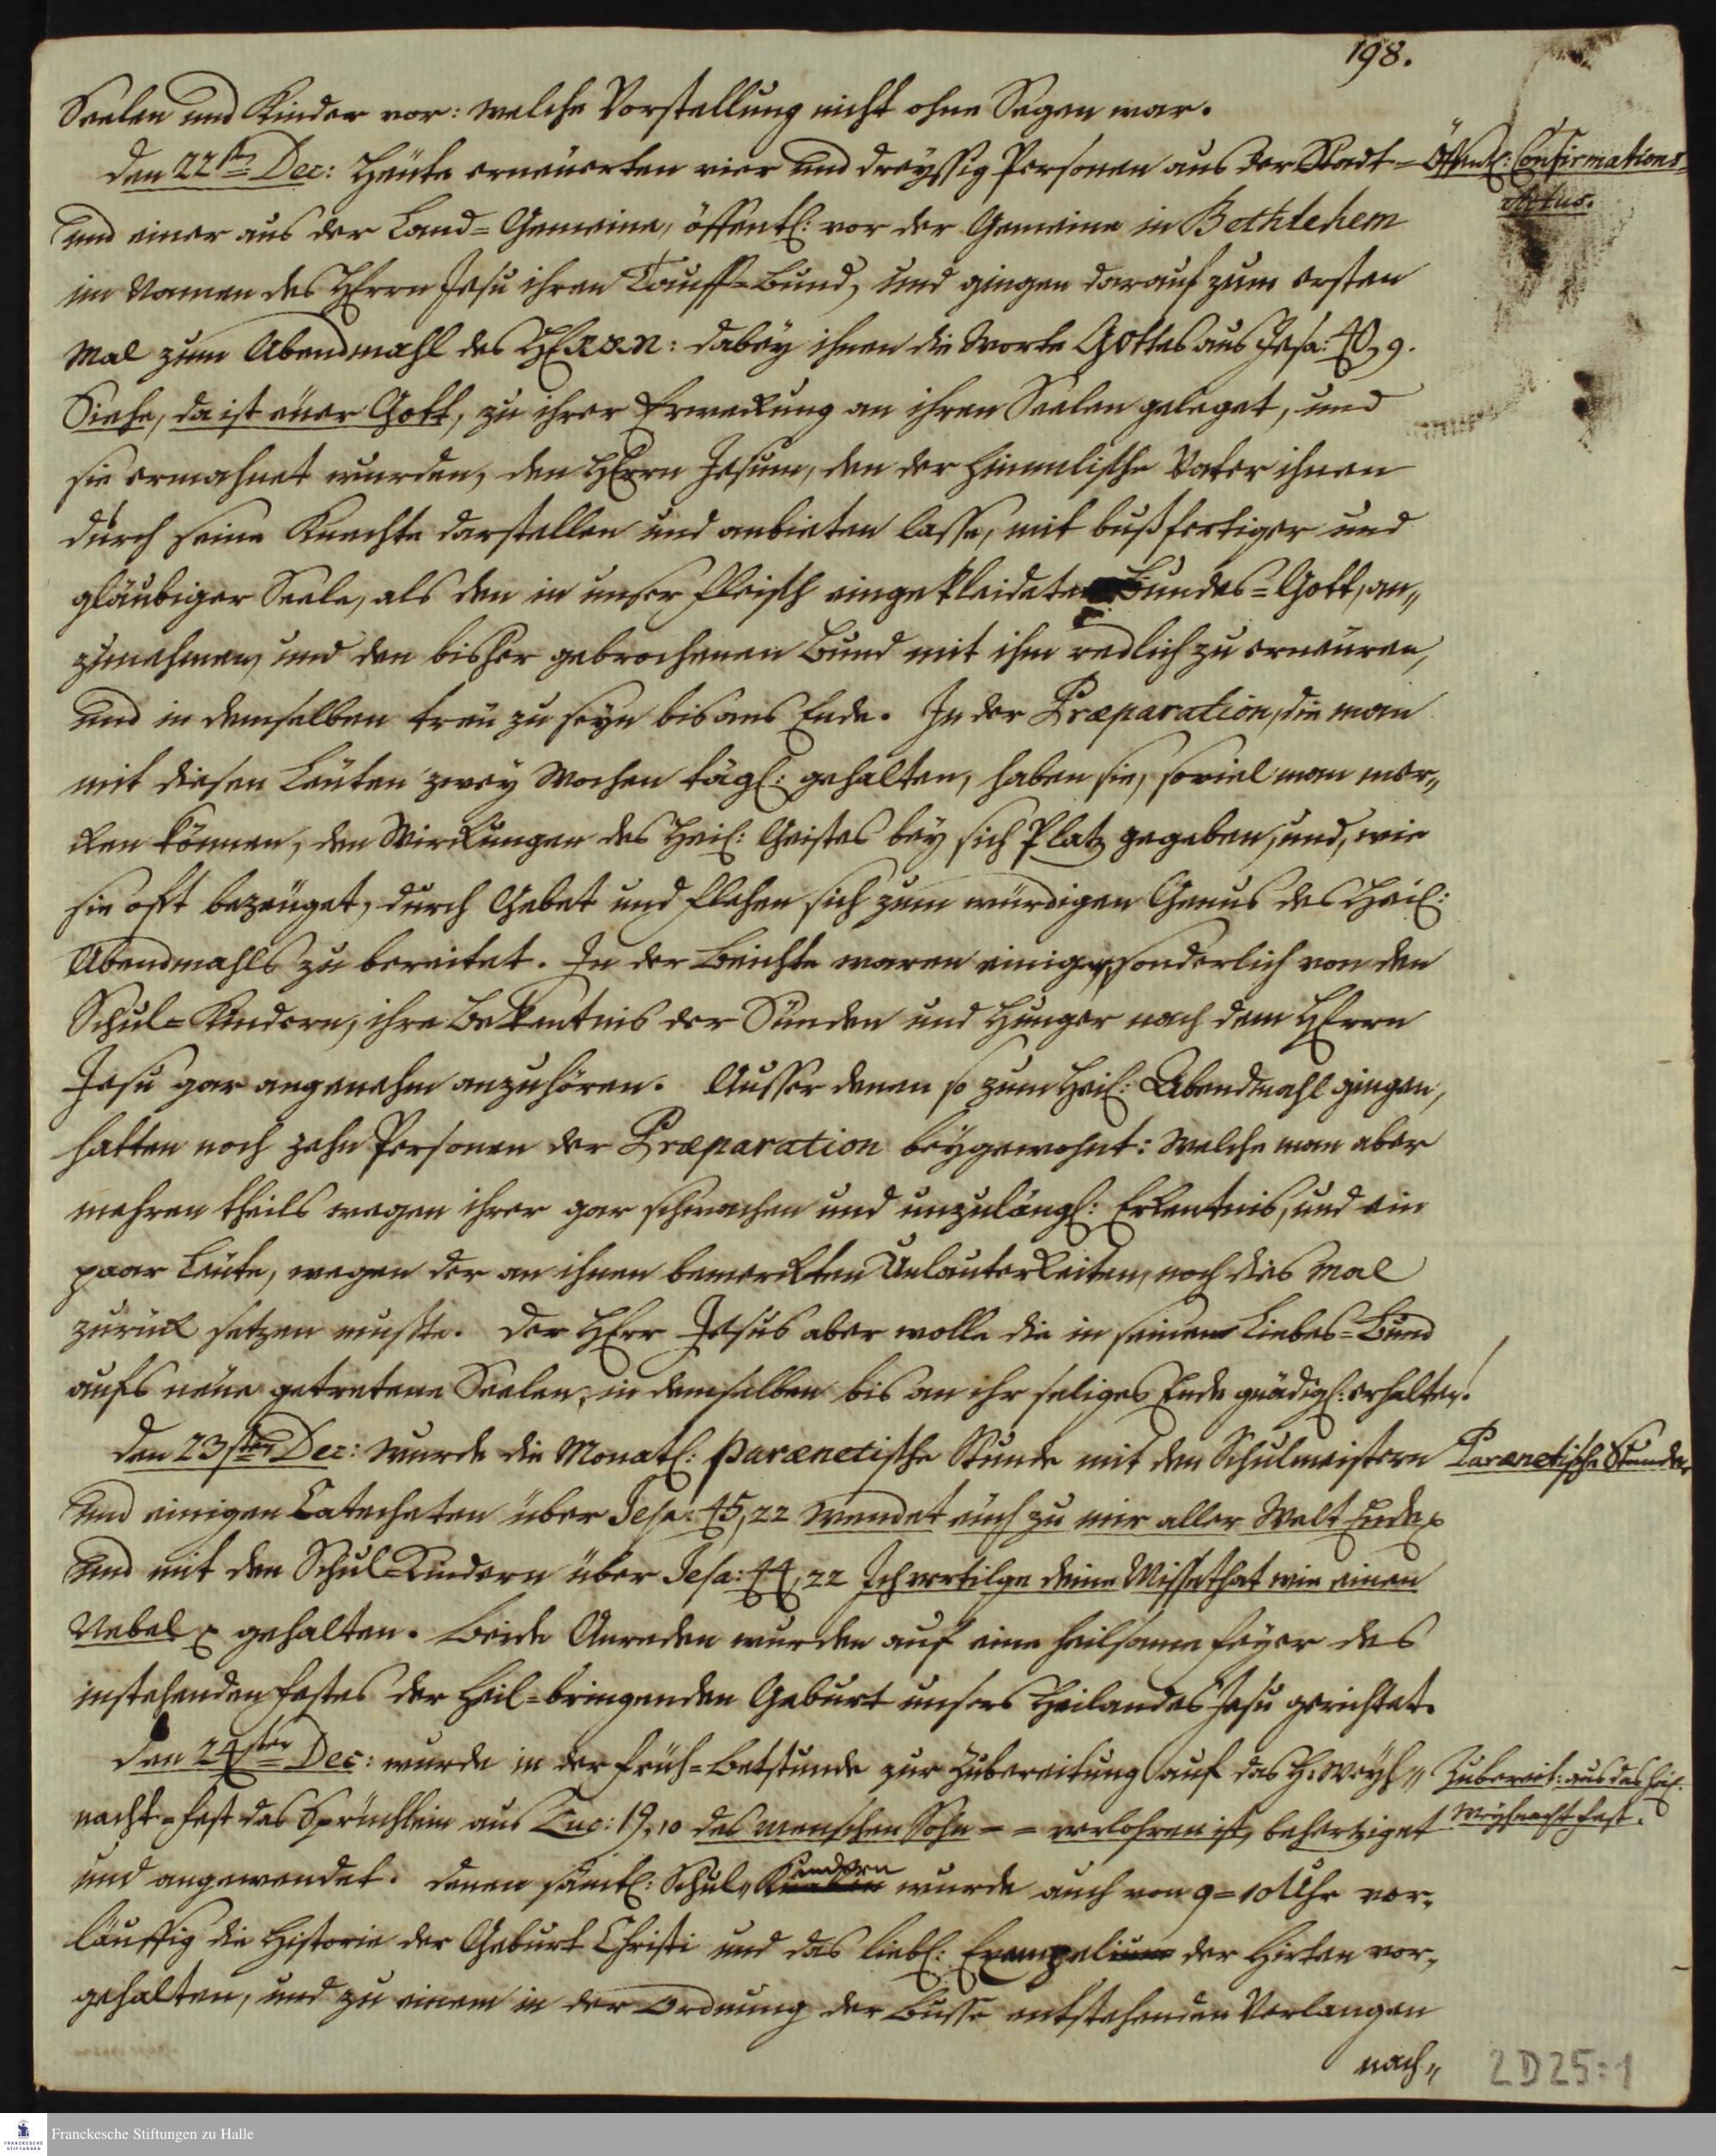 198.
Seelen und Kinder vor: welche Vorstellung nicht ohne Segen war.
Den 22st. Dec: Heute erneuerten vier und dreyssig Personen aus der Stadt-
Öffentl: Confirmations-
Actus.
und einer aus der Land-Gemeine, öffentl: vor der Gemeine in Bethlehem
im Namen des HErrn Jesu ihren Tauff-Bund, und gingen darauf zum ersten
Mal zum Abendmahl des HErrn: dabey ihnen die Worte Gottes aus Jesa: 40, 9.
Siehe, da ist euer Gott, zu ihrer Erweckung an ihren Seelen geleget, und
sie ermahnet wurden, den HErrn Jesum, den der himmlische Vater ihnen
durch seine Knechte darstellen und anbieten lasse, mit bußfertiger und
gläubiger Seele, als den in unser Fleisch eingekleideten Bundes-Gott, an-
zunehmen, und den bisher gebrochenen Bund mit ihm redlich zu erneuren,
und in demselben treu zu seyn bis ans Ende. In der Præparation, die man
mit diesen Leuten zwey Wochen tägl: gehalten, haben sie, soviel man mer-
cken können, den Wirckungen des Heil: Geistes bey sich Platz gegeben, und, wie
sie offt bezeuget, durch Gebet und Flehen sich zum würdigen Genus des Heil:
Abendmahls zu bereitet. In der Beichte waren einiger, sonderlich von den
Schul-Kindern, ihre Bekentnis der Sünden und Hunger nach dem HErrn
Jesu gar angenehm anzuhören. Ausser denen so zum Heil: Abendmahl gingen,
hatten noch zehn Personen der Præparation beygewohnt: welche man aber
mehren theils wegen ihrer gar schwachen und unzulängl: Erkentnis, und ein
paar Leute, wegen der an ihnen bemerckten Unlauterkeiten, noch dies Mal
zurück setzen muste. Der HErr Jesus aber wolle die in seinen Liebes-Bund
aufs neue getretene Seelen, in demselben bis an ihr seliges Ende gnädigl: erhalten!
Den 23sten Dec: wurde die Monatl: parænetische Stunde mit den Schulmeistern
Parænetische Stunde.
und einigen Catecheten über Jesa: 45, 22 Wendet euch zu mir aller Welt Ende
und mit den Schul-Kindern über Jesa: 44, 22 Ich vertilge deine Missethat wie einen
Nebel gehalten. Beide Anreden wurden auf eine heilsame Feyer des
instehenden Festes der Heil-bringenden Geburt unsers Heilandes Jesu gerichtet.
Den 24sten Dec: wurde in der Früh-Betstunde zur Zubereitung auf das H: Weyh-
Zubereit: auf das Heil:
Weyhnacht Fest.
nacht-Fest das Sprüchlein aus Luc: 19, 10 des Menschen Sohn - = verlohren ist, behertziget
und angewendet. Denen sämtl: Schul-Kindern wurde auch von 9-10 Uhr vor-
läuffig die Historie der Geburt Christi und das liebl: Evangelium der Hirten vor-
gehalten, und zu einem in der Ordnung der Busse entstehenden Verlangen
nach-
2D25:1
FRANCKESCHE STIFTUNGEN
Franckesche Stiftungen zu Halle